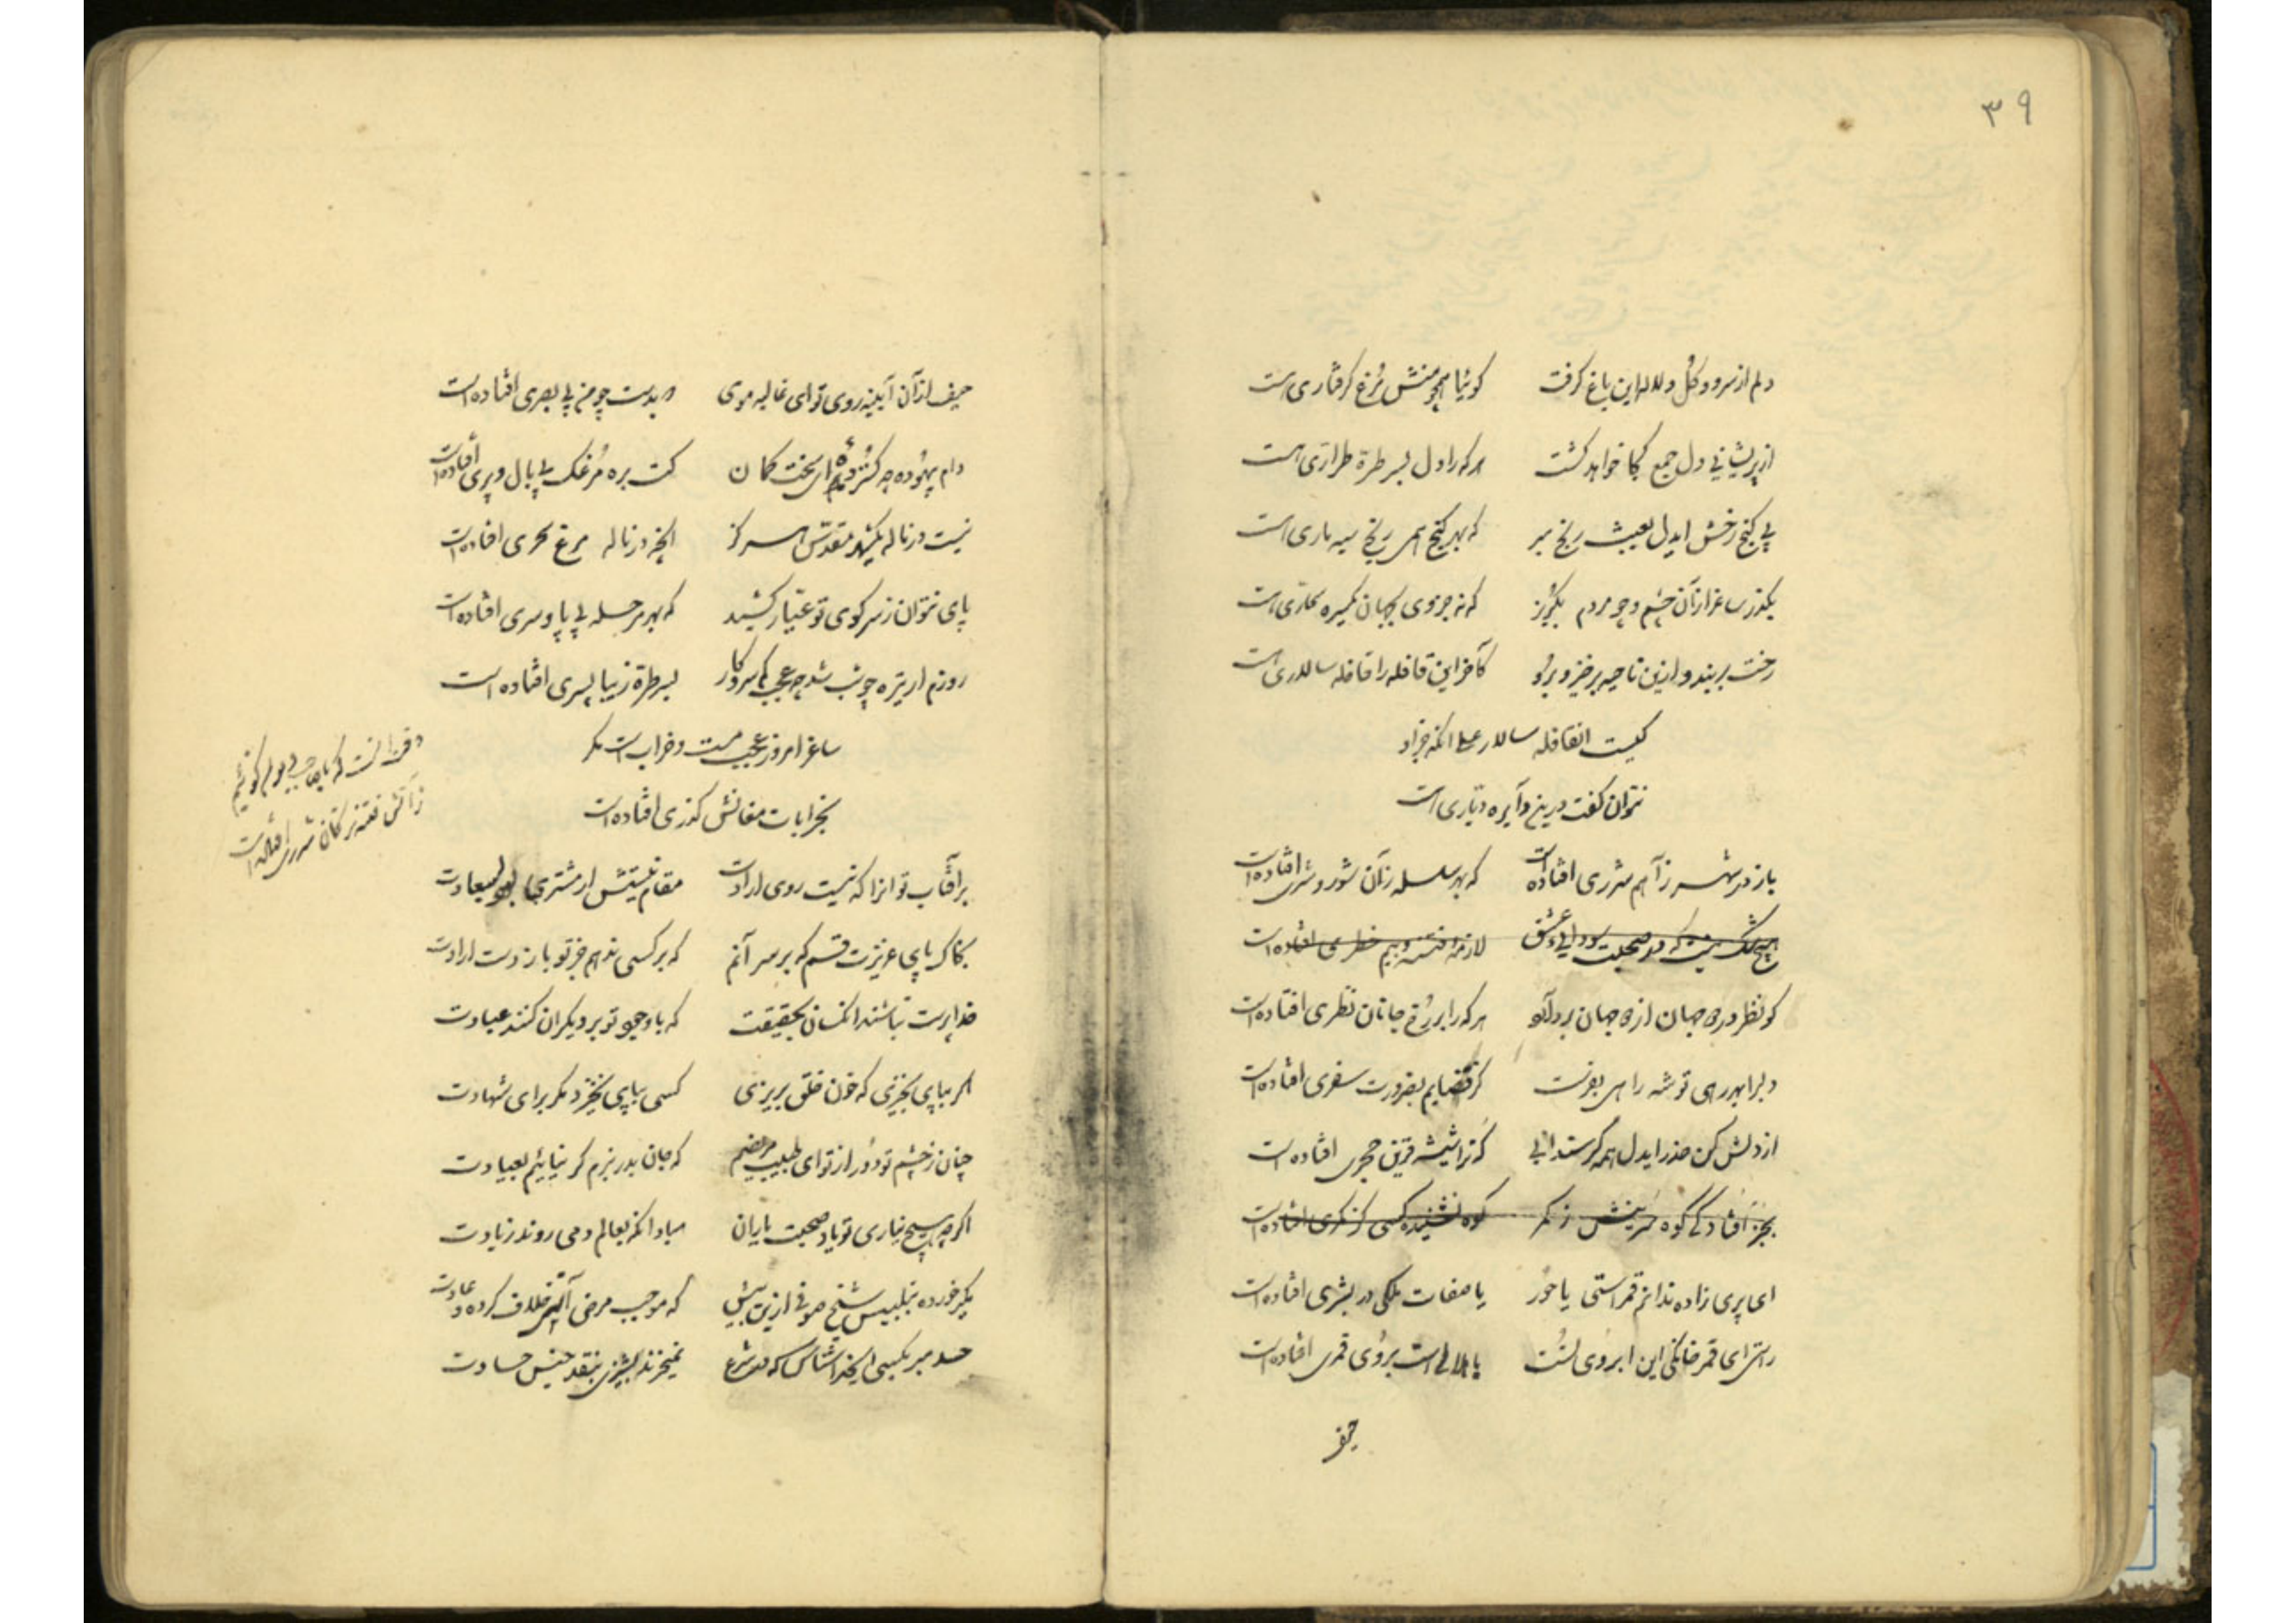 ۳۹
دلم از سرو و گل و لاله این باغ گرفت گوئیا همچو منش مرغ گرفتاری هست
از پریشانی دل جمع کجا خواهد گشت هر که را دل بسر طره طراری هست
بی گنج رخش ایدل بعبث رنج مبر که بهر گنج همی رنج سیه ماری هست
بگذر ساغر از آن چشم و چو مردم بگریز که نه جز وی بجهان
رخت بربند و ازین ناحیه برخیز و برو کآخر این قافله را قافله سالاری هست
کیست القافله سالار علی آنکه جز او
نتوان گفت درین دایره دیاری هست
باز در شهر ز آهم شرری افتاده است که بهر سلسله زآن شور و شری افتاده است
هیچ شک نیست که در صحبت سودای عشق لازمه فتنه و بیم خطری افتاده است
کو نظر در جهان از جهان بردآنکو هر که را بر رخ جانان نظری افتاده است
دلبرا بهر رهی توشه راهی بفرست کز قضایم بضرورت سفری افتاده است
از دلش کن حذر ایدل همه گر سندانی که ترا شیشه قرین حجری افتاده است
بجز افتادگی کوه سرینش ز کمر کوه نشنیده کسی کز کمری افتاده است
ای پری زاده ندانم قمر استی یا حور یا صفات ملکی در بشری افتاده است
راستی ای قمر خانگی این ابروی تست یا هلالی است بروی قمری افتاده است
حیف
حیف از آن آینه روی تو ای غالیه موی بدست چو من بی بصری افتاده است
دام بیهوده چه گسترده ای سخت کمان کت بره مرغک بی بال و پری افتاده است
نیست در ناله یکشهر مقدس هرگز آنچه در ناله مرغ سحری افتاده است
پای نتوان ز سر کوی تو عیار کشید که بهر مرحله بی پا و سری افتاده است
روزم ار تیره چو شب شد چه عجب کم سر و کار بسر طره زیبا پسری افتاده است
ساغر امروز عجب مست و خراب است مگر
بخرابات مغانش گذری افتاده است
ز آتش فتنه ترکان شرری افتاده است
بر آفتاب تو آنرا که نیست روی ارادت مقام نیستش ار مشتری سعادت
بخاک پای عزیزت قسم که بر سر آنم که بر کسی ندهم جز تو باز دست ارادت
خداپرست نباشند آنکسان بحقیقت که با وجود تو بر دیگران کنند عبادت
اگر بپای بخیزی که خون خلق بریزی کسی بپای نخیزد مگر برای شهادت
چنان ز چشم تو دور از تو ای طبیب مریضم که جان بدر نبرم گر نیاییم بعیادت
اگر چه هیچ نیاری تو یاد صحبت یاران مباد آنکه بعالم دمی روند ز یادت
مگیر خورده بتلبیس شیخ صوفی ازین بیش که موجب مرض آمد خلاف کرده و عادت
حسد مبر بکسی ایخداشناس که در شرع نمیخرند پشیزی بنقد جنس حسادت